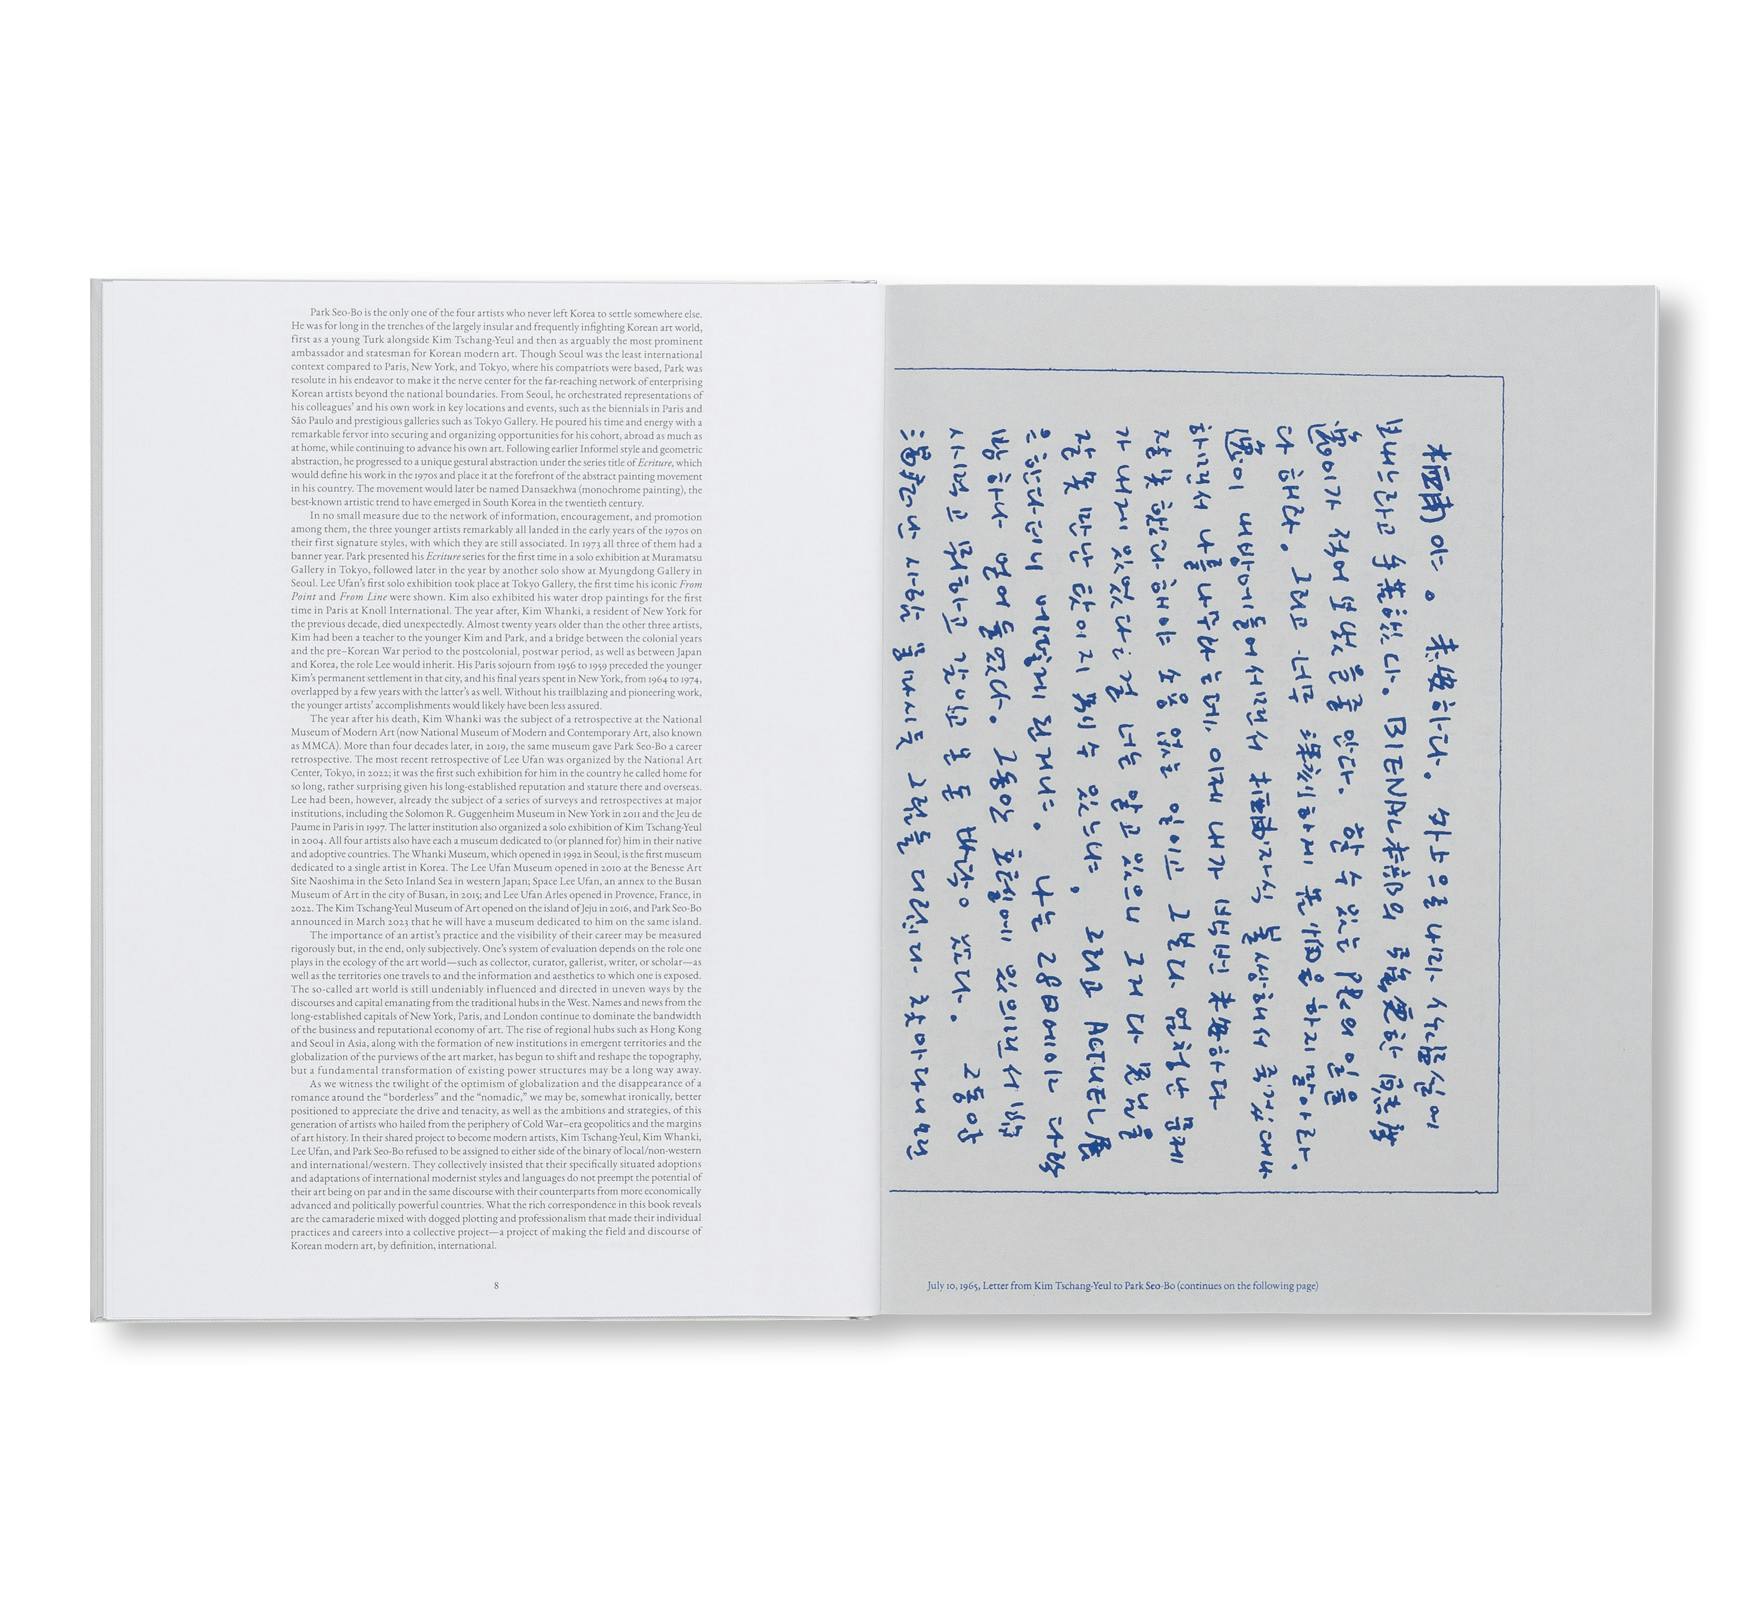 Park Seo-Bo is the only one of the four artists who never left Korea to settle somewhere else.
He was for long in the trenches of the largely insular and frequently infighting Korean art world,
first as a young Turk alongside Kim Tschang-Yeul and then as arguably the most prominent
ambassador and statesman for Korean modern art. Though Seoul was the least international
context compared to Paris, New York, and Tokyo, where his compatriots were based, Park was
resolute in his endeavor to make it the nerve center for the far-reaching network of enterprising
Korean artists beyond the national boundaries. From Seoul, he orchestrated representations of
his colleagues' and his own work in key locations and events, such as the biennials in Paris and
São Paulo and prestigious galleries such as Tokyo Gallery. He poured his time and energy with a
remarkable fervor into securing and organizing opportunities for his cohort, abroad as much as
at home, while continuing to advance his own art. Following earlier Informel style and geometric
abstraction, he progressed to a unique gestural abstraction under the series title of Ecriture, which
would define his work in the 1970s and place it at the forefront of the abstract painting movement
in his country. The movement would later be named Dansaekhwa (monochrome painting), the
best-known artistic trend to have emerged in South Korea in the twentieth century.
In no small measure due to the network of information, encouragement, and promotion
among them, the three younger artists remarkably all landed in the early years of the 1970s on
their first signature styles, with which they are still associated. In 1973 all three of them had a
banner year. Park presented his Ecriture series for the first time in a solo exhibition at Muramatsu
Gallery in Tokyo, followed later in the year by another solo show at Myungdong Gallery in
Seoul. Lee Ufan's first solo exhibition took place at Tokyo Gallery, the first time his iconic From
Point and From Line were shown. Kim also exhibited his water drop paintings for the first
time in Paris at Knoll International. The year after, Kim Whanki, a resident of New York for
the previous decade, died unexpectedly. Almost twenty years older than the other three artists,
Kim had been a teacher to the younger Kim and Park, and a bridge between the colonial years
and the pre–Korean War period to the postcolonial, postwar period, as well as between Japan
and Korea, the role Lee would inherit. His Paris sojourn from 1956 to 1959 preceded the younger
Kim's permanent settlement in that city, and his final years spent in New York, from 1964 to 1974,
overlapped by a few years with the latter's as well. Without his trailblazing and pioneering work,
the younger artists' accomplishments would likely have been less assured.
The year after his death, Kim Whanki was the subject of a retrospective at the National
Museum of Modern Art (now National Museum of Modern and Contemporary Art, also known
as MMCA). More than four decades later, in 2019, the same museum gave Park Seo-Bo a career
retrospective. The most recent retrospective of Lee Ufan was organized by the National Art
Center, Tokyo, in 2022; it was the first such exhibition for him in the country he called home for
so long, rather surprising given his long-established reputation and stature there and overseas.
Lee had been, however, already the subject of a series of surveys and retrospectives at major
institutions, including the Solomon R. Guggenheim Museum in New York in 2011 and the Jeu de
Paume in Paris in 1997. The latter institution also organized a solo exhibition of Kim Tschang-Yeul
in 2004. All four artists also have each a museum dedicated to (or planned for) him in their native
and adoptive countries. The Whanki Museum, which opened in 1992 in Seoul, is the first museum
dedicated to a single artist in Korea. The Lee Ufan Museum opened in 2010 at the Benesse Art
Site Naoshima in the Seto Inland Sea in western Japan; Space Lee Ufan, an annex to the Busan
Museum of Art in the city of Busan, in 2015; and Lee Ufan Arles opened in Provence, France, in
2022. The Kim Tschang-Yeul Museum of Art opened on the island of Jeju in 2016, and Park Seo-Bo
announced in March 2023 that he will have a museum dedicated to him on the same island.
The importance of an artist's practice and the visibility of their career may be measured
rigorously but, in the end, only subjectively. One's system of evaluation depends on the role one
plays in the ecology of the art world—such as collector, curator, gallerist, writer, or scholar—as
well as the territories one travels to and the information and aesthetics to which one is exposed.
The so-called art world is still undeniably influenced and directed in uneven ways by the
discourses and capital emanating from the traditional hubs in the West. Names and news from the
long-established capitals of New York, Paris, and London continue to dominate the bandwidth
of the business and reputational economy of art. The rise of regional hubs such as Hong Kong
and Seoul in Asia, along with the formation of new institutions in emergent territories and the
globalization of the purviews of the art market, has begun to shift and reshape the topography,
but a fundamental transformation of existing power structures may be a long way away.
As we witness the twilight of the optimism of globalization and the disappearance of a
romance around the "borderless" and the "nomadic," we may be, somewhat ironically, better
positioned to appreciate the drive and tenacity, as well as the ambitions and strategies, of this
generation of artists who hailed from the periphery of Cold War–era geopolitics and the margins
of art history. In their shared project to become modern artists, Kim Tschang-Yeul, Kim Whanki,
Lee Ufan, and Park Seo-Bo refused to be assigned to either side of the binary of local/non-western
and international/western. They collectively insisted that their specifically situated adoptions
and adaptations of international modernist styles and languages do not preempt the potential of
their art being on par and in the same discourse with their counterparts from more economically
advanced and politically powerful countries. What the rich correspondence in this book reveals
are the camaraderie mixed with dogged plotting and professionalism that made their individual
practices and careers into a collective project—a project of making the field and discourse of
Korean modern art, by definition, international.
8
栖甫야。 未安하다.
보내느라고 BIENAL本部의
보냈을 줄 안다. 할 수 있는 PR의 일을
다 해라. 그리고 너무 深刻하게 하지 말아라.
이 내 방에 들어서면서 栖甫자식 불쌍해서 죽겠대나
하면서 나를 나무라는데, 이제 내가 백번 未安하다
잘못했다 해야 소용 없는 일이고 그보다 엄청난 문제
가 내게 있었다는 걸 너는 알고 있으니 그저 다 못난 놈을
잘못 만난 탓이지 수 있느냐. 그리고 ACTUEL展
은 한다더니 어떻게 된 거냐. 나는 28日에야 다락
방 하나 얻어 들었다. 그동안 호텔에 있으면서 밥
사먹고 뭐하고 바닥이 났다. 그동안
July 10, 1965, Letter from Kim Tschang-Yeul to Park Seo-Bo (continues on the following page)